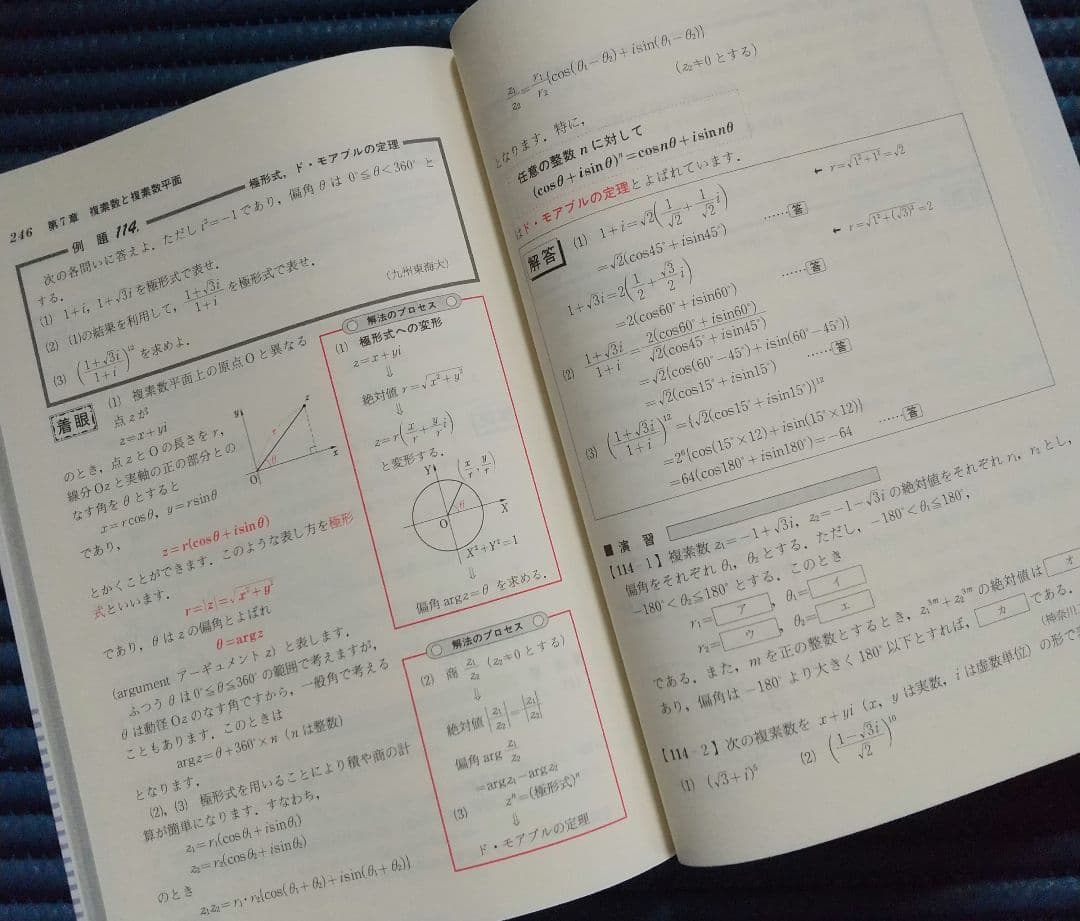 246 第7章 複素数と複素数平面
例題 114. 極形式，ド・モアブルの定理
次の各問いに答えよ．ただし i²=−1 であり，偏角 θ は 0°≦θ<360° と
する．
(1) 1+i, 1+√3i を極形式で表せ．
(2) (1)の結果を利用して，(1+√3i)/(1+i) を極形式で表せ．
(3) ((1+√3i)/(1+i))¹² を求めよ． （九州東海大）
着眼 (1) 複素数平面上の原点Oと異なる
点 z が
z=x+yi
のとき，点 z とOの長さを r，
線分Oz と実軸の正の部分との
なす角を θ とすると
x=rcosθ, y=rsinθ
であり，
z=r(cosθ+isinθ)
とかくことができます．このような表し方を極形
式といいます．
r=|z|=√(x²+y²)
であり，θ は z の偏角とよばれ
θ=argz
(argument アーギュメント z) と表します．
ふつう θ は 0°≦θ≦360° の範囲で考えますが，
θ は動径Oz のなす角ですから，一般角で考える
こともあります．このときは
argz=θ+360°×n (n は整数)
となります．
(2), (3) 極形式を用いることにより積や商の計
算が簡単になります．すなわち，
z₁=r₁(cosθ₁+isinθ₁)
z₂=r₂(cosθ₂+isinθ₂)
のとき
z₁z₂=r₁·r₂{cos(θ₁+θ₂)+isin(θ₁+θ₂)}
y
z
r
θ
O
x
解法のプロセス
(1) 極形式への変形
z=x+yi
⇓
絶対値 r=√(x²+y²)
⇓
z=r(x/r+y/r i)
と変形する．
Y
(x/r, y/r)
θ
O
X
X²+Y²=1
⇓
偏角 argz=θ を求める．
解法のプロセス
(2) 商 z₁/z₂ (z₂≠0 とする)
⇓
絶対値 |z₁/z₂|=|z₁|/|z₂|
偏角 arg z₁/z₂
=argz₁−argz₂
(3) zⁿ=(極形式)ⁿ
⇓
ド・モアブルの定理
z₁/z₂=r₁/r₂{cos(θ₁−θ₂)+isin(θ₁−θ₂)}
(z₂≠0 とする)
となります．特に，
任意の整数 n に対して
(cosθ+isinθ)ⁿ=cosnθ+isinnθ
はド・モアブルの定理とよばれています．
解答 (1) 1+i=√2(1/√2+1/√2 i) ← r=√(1²+1²)=√2
=√2(cos45°+isin45°) ……答
1+√3i=2(1/2+√3/2 i) ← r=√(1²+(√3)²)=2
=2(cos60°+isin60°) ……答
(2) (1+√3i)/(1+i)=2(cos60°+isin60°)/√2(cos45°+isin45°)
=√2{cos(60°−45°)+isin(60°−45°)}
=√2(cos15°+isin15°) ……答
(3) ((1+√3i)/(1+i))¹²={√2(cos15°+isin15°)}¹²
=2⁶{cos(15°×12)+isin(15°×12)}
=64(cos180°+isin180°)=−64 ……答
■演習
【114-1】複素数 z₁=−1+√3i, z₂=−1−√3i の絶対値をそれぞれ r₁, r₂ とし，
偏角をそれぞれ θ₁, θ₂ とする．ただし，−180°<θ₁≦180°，
−180°<θ₂≦180° とする．このとき
r₁=ア, θ₁=イ
r₂=ウ, θ₂=エ
である．また，m を正の整数とするとき，z₁³ᵐ+z₂³ᵐ の絶対値は オ
あり，偏角は −180° より大きく 180° 以下とすれば，カ である．
(神奈川
【114-2】次の複素数を x+yi (x, y は実数，i は虚数単位) の形で
(1) (√3+i)⁵ (2) ((1−√3i)/√2)¹⁰